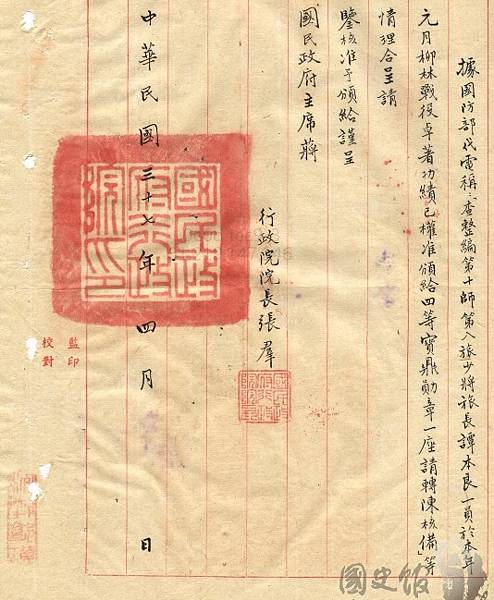 據國防部代電稱：「查整編第十師第八旅少將旅長譚本良一員於本年
元月柳林戰役卓著功績已權准頒給四等寶鼎勛章一座請轉陳核備」等
情理合呈請
鑒核准予頒給謹呈
國民政府主席蔣
行政院院長張羣
中華民國三十七年四月 日
監印
校對
國民政府行政院印
國史館